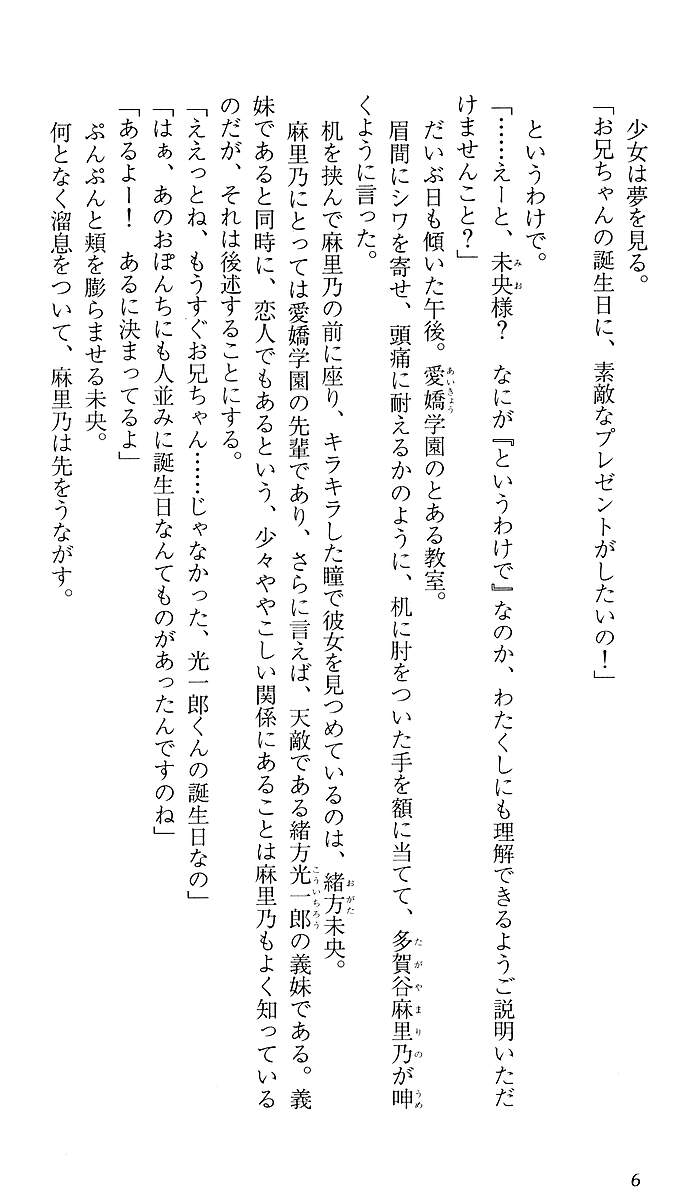 少女は夢を見る。
「お兄ちゃんの誕生日に、素敵なプレゼントがしたいの！」
というわけで。
「……えーと、未央様？　なにが『というわけで』なのか、わたくしにも理解できるようご説明いただ
けませんこと？」
だいぶ日も傾いた午後。愛嬌学園のとある教室。
眉間にシワを寄せ、頭痛に耐えるかのように、机に肘をついた手を額に当てて、多賀谷麻里乃が呻
くように言った。
机を挟んで麻里乃の前に座り、キラキラした瞳で彼女を見つめているのは、緒方未央。
麻里乃にとっては愛嬌学園の先輩であり、さらに言えば、天敵である緒方光一郎の義妹である。義
妹であると同時に、恋人でもあるという、少々ややこしい関係にあることは麻里乃もよく知っている
のだが、それは後述することにする。
「ええっとね、もうすぐお兄ちゃん……じゃなかった、光一郎くんの誕生日なの」
「はぁ、あのおぽんちにも人並みに誕生日なんてものがあったんですのね」
「あるよー！　あるに決まってるよ」
ぷんぷんと頬を膨らませる未央。
何となく溜息をついて、麻里乃は先をうながす。
6